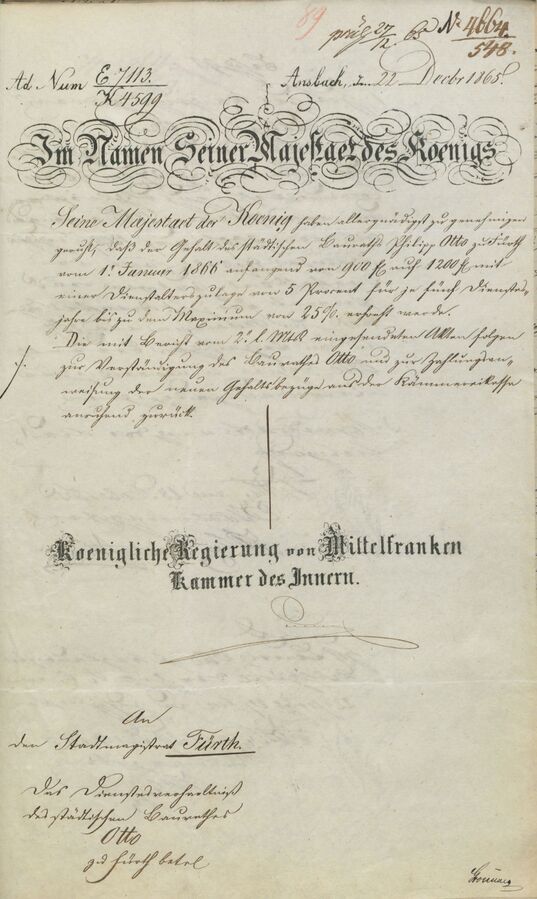 89
präs 27/12. 65 No 4664.
548.
Ad Num E 7113.
K 4599
Ansbach, den 22 Decbr 1865.
Im Namen Seiner Majestaet des Koenigs
Seine Majestaet der Koenig haben allergnädigst zu genehmigen
geruht, daß der Gehalt des städtischen Bauraths Philipp Otto zu Fürth
vom 1. Januar 1866 anfangend von 900 f auf 1200 f mit
einer Dienstalterszulage von 5 Procent für je fünf Dienstes-
jahre bis zu dem Maximum von 25% erhöht werde.
Die mit Bericht vom 2. l. Mts eingesendeten Akten folgen
zur Verständigung des Baurathes Otto und zur Zahlungsan-
weisung der neuen Gehaltsbezüge aus der Kämmereikasse
anruhend zurück.
Koenigliche Regierung von Mittelfranken
Kammer des Innern.
An
den Stadtmagistrat Fürth.
Das Dienstesverhaeltniß
des städtischen Baurathes
Otto
zu Fürth betr